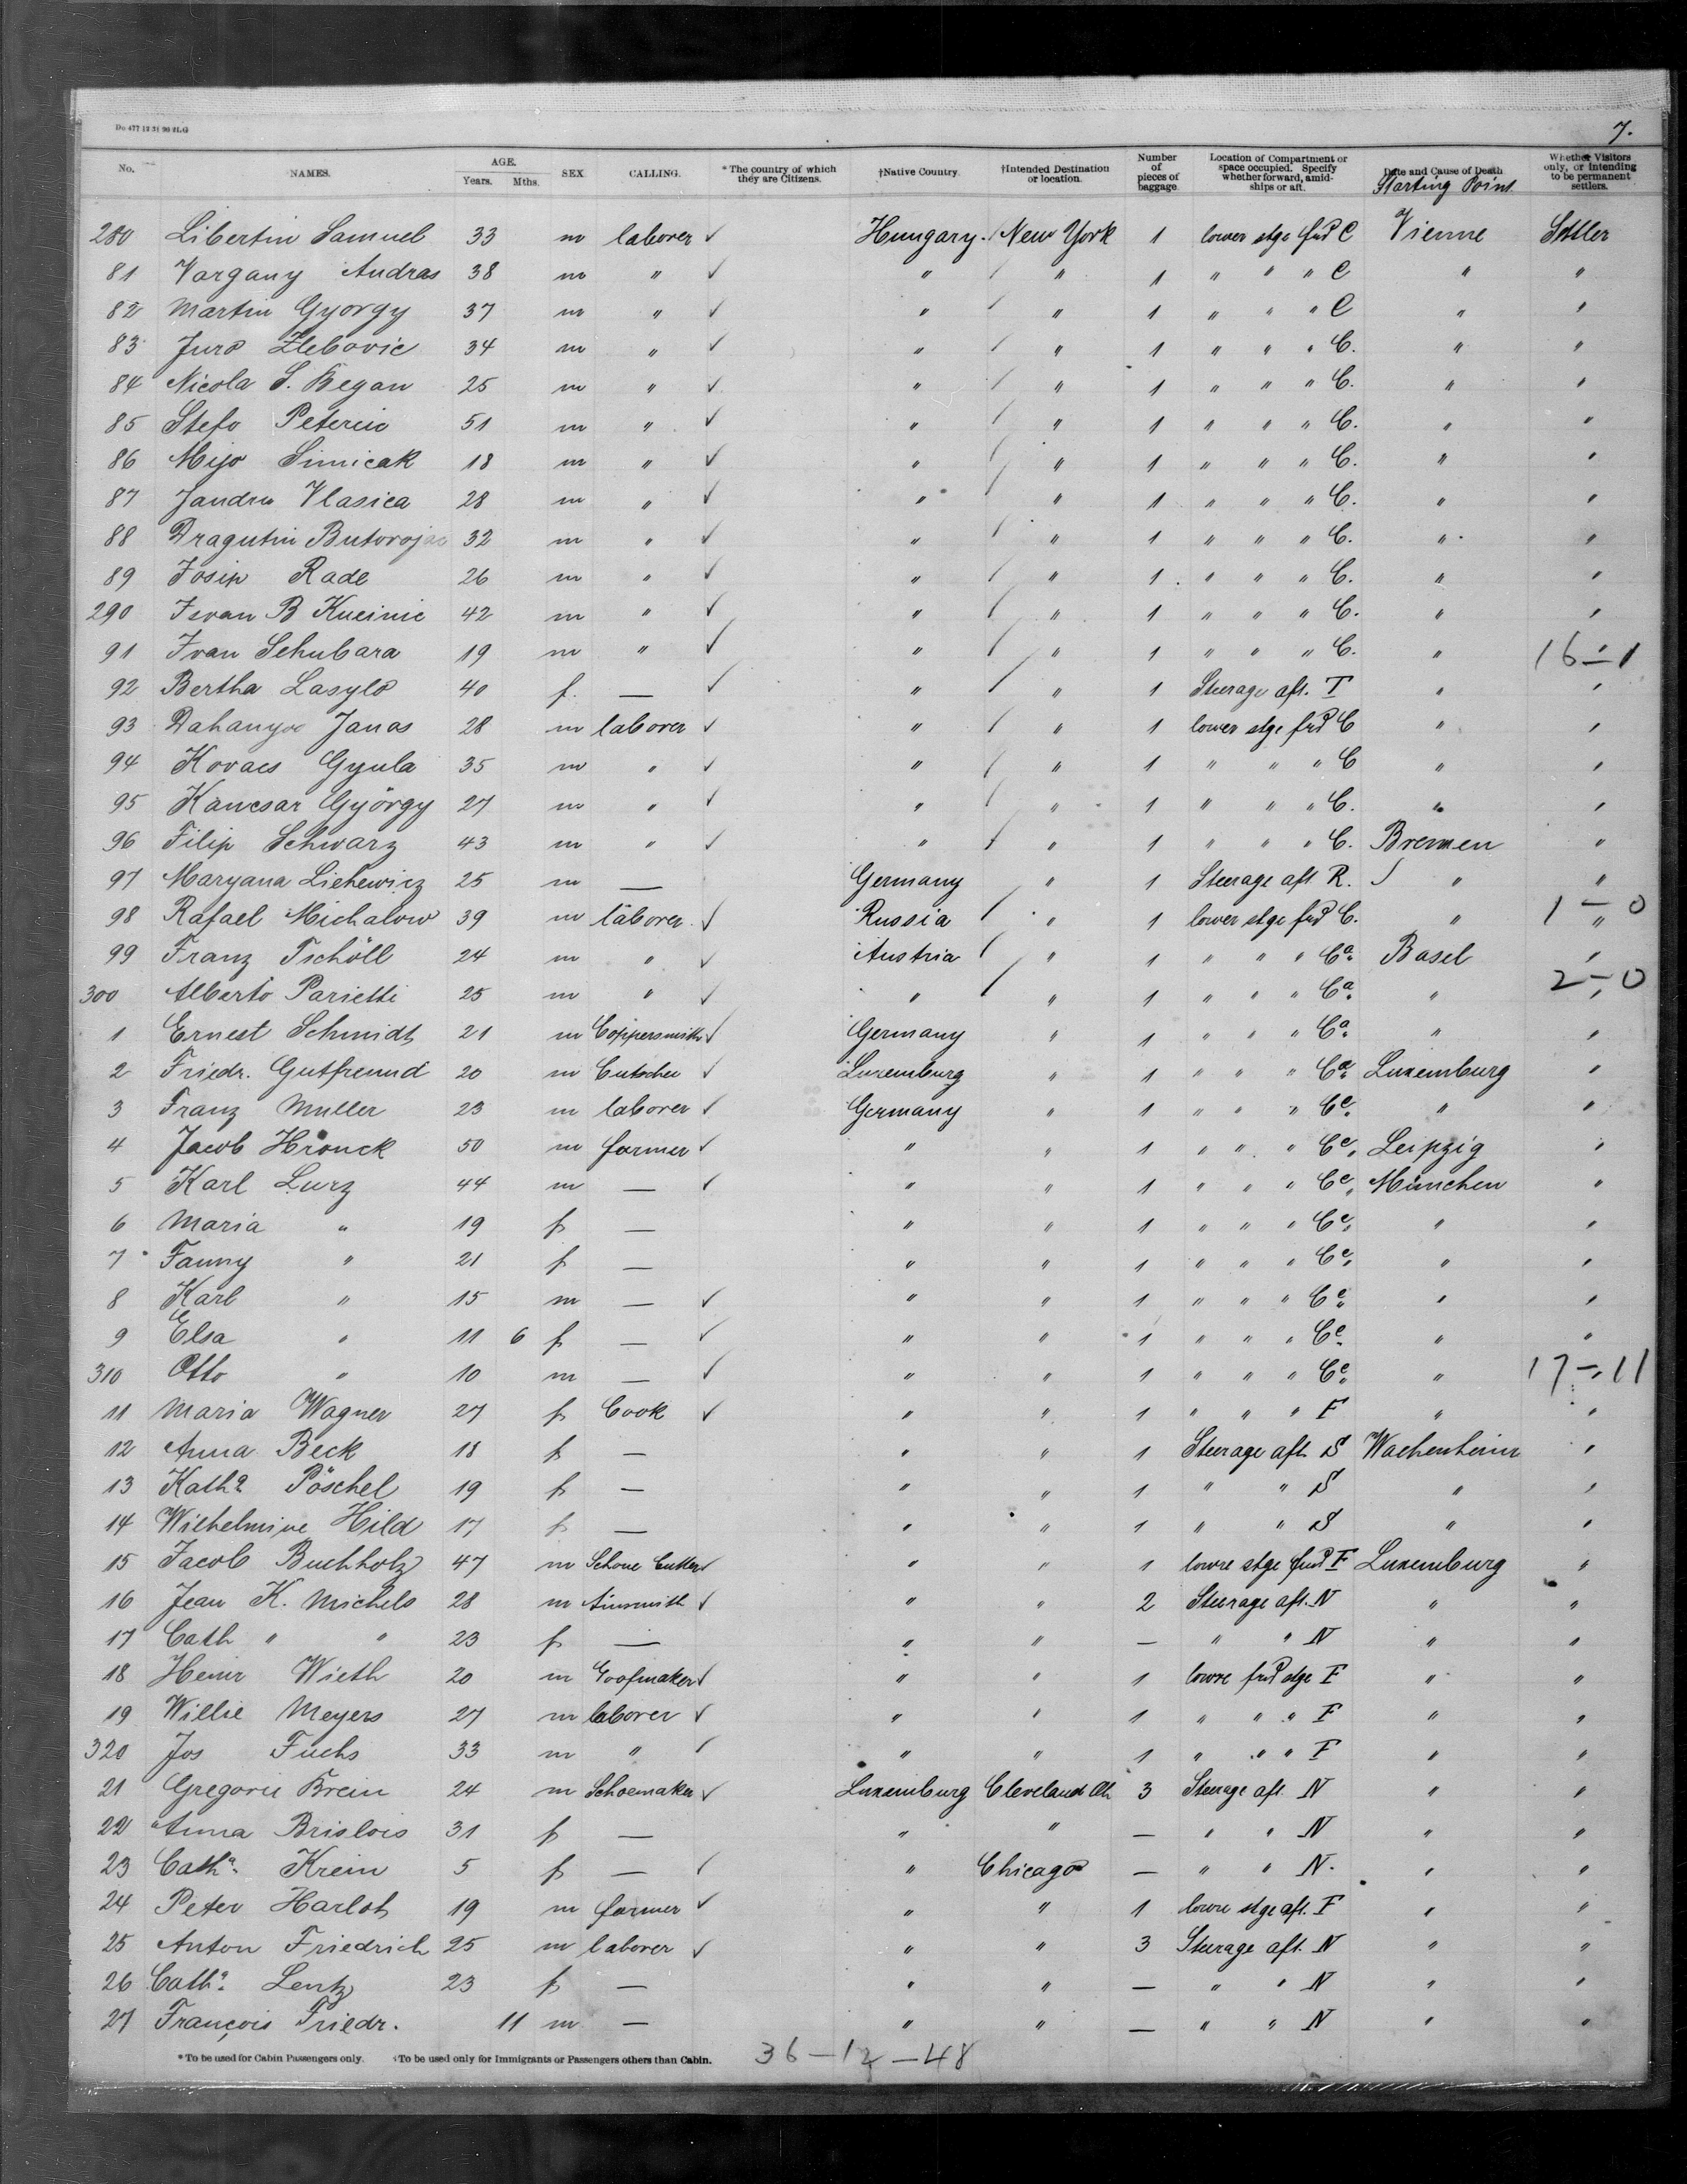 Do 477 12 31 90 2LG
7.
No. NAMES. AGE. Years. Mths. SEX CALLING. *The country of which they are Citizens. †Native Country. †Intended Destination or location. Number of pieces of baggage. Location of Compartment or space occupied. Specify whether forward, amidships or aft. Date and Cause of Death Starting Point Whether Visitors only, or intending to be permanent settlers.
280 Libertin Samuel 33 m laborer ✓ Hungary. / New York 1 lower stge fwd C Vienne Settler
81 Vargany Andras 38 m " ✓ " / " 1 " " " C " "
82 Martin Gyorgy 37 m " ✓ " / " 1 " " " C " "
83 Juro Zlebovic 34 m " ✓ " / " 1 " " " C. " "
84 Nicola S. Began 25 m " ✓ " / " 1 " " " C. " "
85 Stefo Peteric 51 m " ✓ " / " 1 " " " C. " "
86 Mijo Simicak 18 m " ✓ " / " 1 " " " C. " "
87 Jandro Vlasica 28 m " ✓ " / " 1 " " " C. " "
88 Dragutin 32 m " ✓ " / " 1 " " " C. " "
89 Josip Rade 26 m " ✓ " / " 1 " " " C. " "
290 B Kucinic 42 m " ✓ " / " 1 " " " C. " "
91 Ivan Schubara 19 m " ✓ " / " 1 " " " C. " " 16–1
92 Bertha Lasylo 40 f. — ✓ " / " 1 Steerage aft. T " "
93 Janos 28 m laborer ✓ " / " 1 lower stge fwd C " "
94 Kovacs Gyula 35 m " ✓ " / " 1 " " " C " "
95 Kancsar György 27 m " ✓ " / " 1 " " " C. " "
96 Filip Schwarz 43 m " ✓ " / " 1 " " " C. Bremen "
97 Maryana Lichewicz 25 m — Germany " 1 Steerage aft R. " "
98 Rafael Michalow 39 m laborer ✓ Russia / " 1 lower stge fwd C. " " 1–0
99 Franz Tschöll 24 m " ✓ Austria / " 1 " " " Ca. Basel "
300 Alberto Parietti 25 m " ✓ " / " 1 " " " Ca. " " 2–0
1 Ernest Schmidt 21 m Coppersmith ✓ Germany " 1 " " " Ca. " "
2 Friedr. Gutfreund 20 m Cutscher ✓ Luxemburg " 1 " " " Ca. Luxemburg "
3 Franz Muller 23 m laborer ✓ Germany " 1 " " " Ce. " "
4 Jacob Hronck 50 m farmer ✓ " " 1 " " " Ce. Leipzig "
5 Karl Lurz 44 m — ✓ " " 1 " " " Ce. München "
6 Maria " 19 f — " " 1 " " " Ce. " "
7 Fanny " 21 f — " " 1 " " " Ce. " "
8 Karl " 15 m — ✓ " " 1 " " " Ce. " "
9 Elsa " 11 6 f — ✓ " " 1 " " " Ce. " "
310 Otto " 10 m — ✓ " " 1 " " " Ce. " " 17–11
11 Maria Wagner 27 f Cook ✓ " " 1 " " " F " "
12 Anna Beck 18 f — " " 1 Steerage aft. S Wachenheim "
13 Katha. Pöschel 19 f — " " 1 " " S " "
14 Wilhelmine Hild 17 f — " " 1 " " S " "
15 Jacob Buchholz 47 m Schoue Cutter ✓ " " 1 lowre stge fwd F Luxemburg "
16 Jean K. Michels 28 m tinsmith ✓ " " 2 Steerage aft. N " "
17 Cath " " 23 f — " " — " " N " "
18 Henir Wieth 20 m ✓ " " 1 lowre fwd stge F " "
19 Willie Meyers 27 m laborer ✓ " " 1 " " " F " "
320 Jos Fuchs 33 m " ✓ " " 1 " " " F " "
21 Gregorie Krein 24 m Schoemaker ✓ Luxemburg Cleveland Oh 3 Steerage aft. N " "
22 Anna Brislois 31 f — " " — " " N " "
23 Catha. Krein 5 f — ✓ " Chicago — " " N. " "
24 Peter Harlot 19 m farmer ✓ " " 1 lowre stge aft. F " "
25 Anton Friedrich 25 m laborer ✓ " " 3 Steerage aft. N " "
26 Catha. Lentz 23 f — " " — " " N " "
27 François Friedr. 11 m — " " — " " N " "
*To be used for Cabin Passengers only. †To be used only for Immigrants or Passengers others than Cabin. 36–12–48